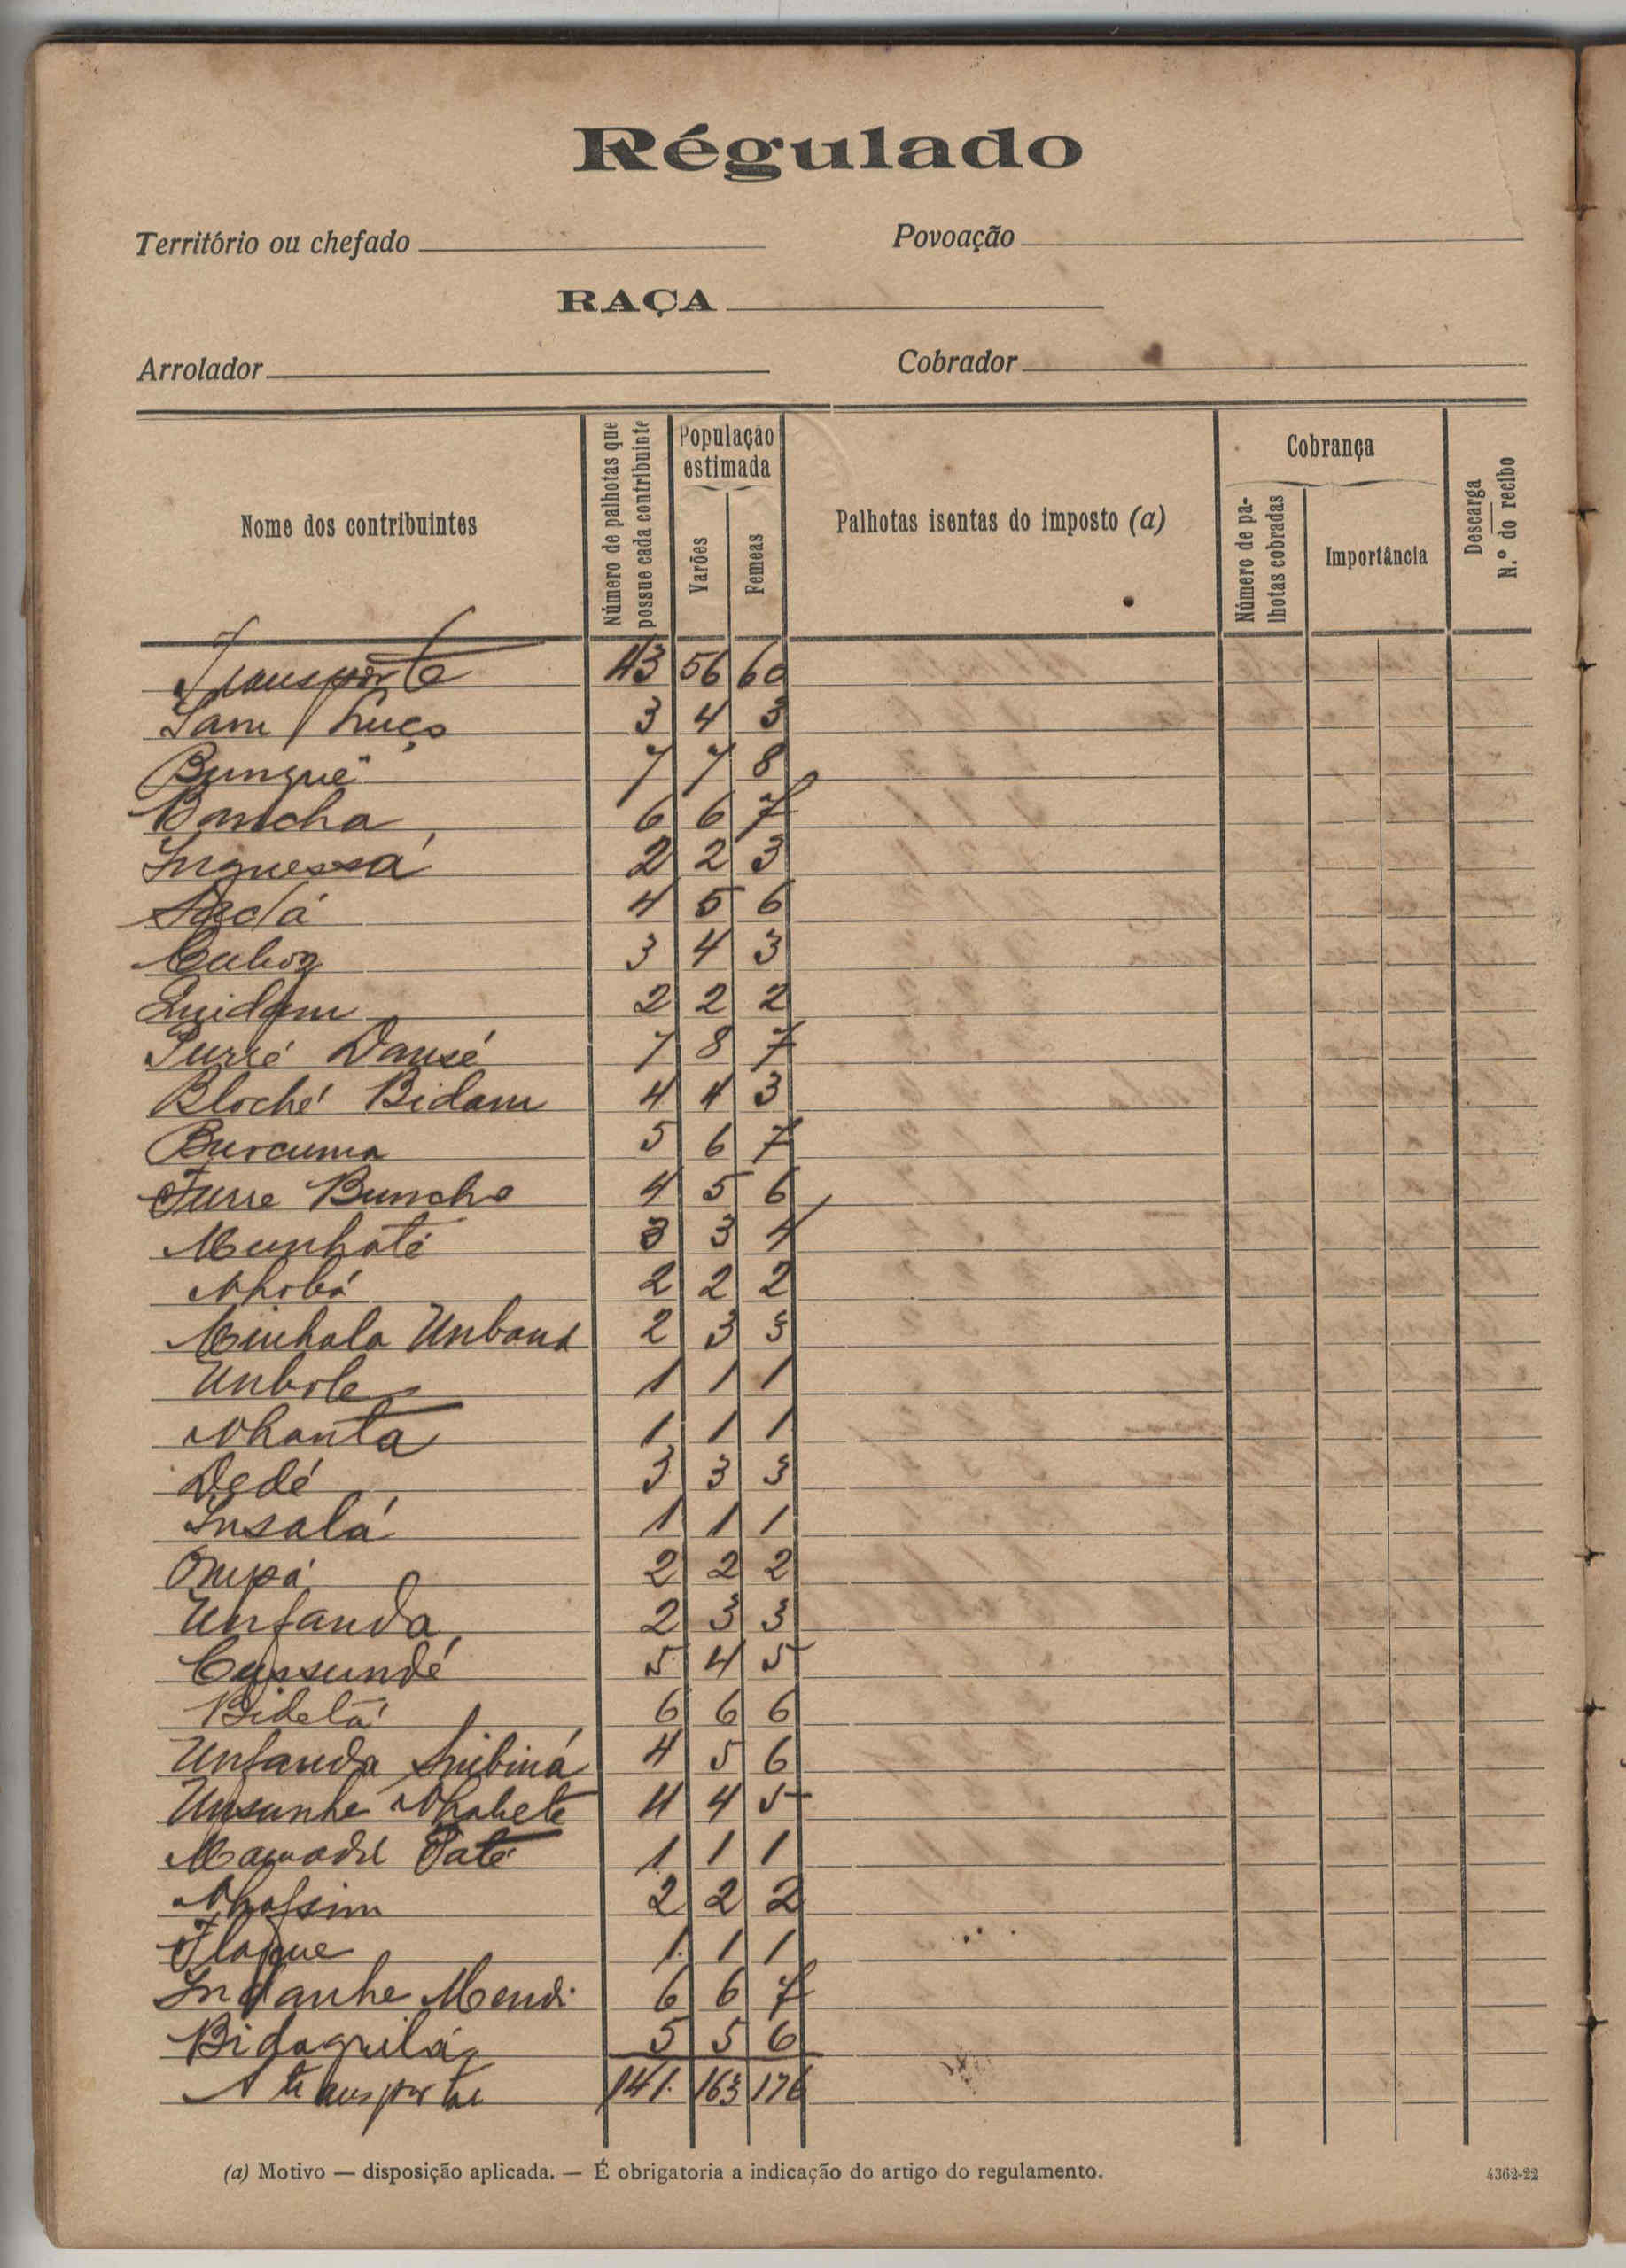 Régulado
Território ou chefado Povoação
RAÇA
Arrolador Cobrador
Nome dos contribuintes Número de palhotas que possue cada contribuinte População estimada Varões Femeas Palhotas isentas do imposto (a) Cobrança Número de palhotas cobradas Importância Descarga N.º do recibo
Transporte 43 56 60
3 4 3
Bungue 7 7 8
Bancha 6 6 7
Inguessá 2 2 3
4 5 6
3 4 3
2 2 2
Dansé 7 8 7
Bloché Bidam 4 4 3
Burcuma 5 6 7
Furre Buncho 4 5 6
Munhoté 3 3 4
Nhobá 2 2 2
2 3 3
Unbole 1 1 1
Nhanta 1 1 1
Dedé 3 3 3
Insalá 1 1 1
2 2 2
Unfanda 2 3 3
Cussundé 5 4 5
Bidetá 6 6 6
Unfanda 4 5 6
Unsunhe Nhabete 4 4 5
Mamadú Paté 1 1 1
Nhafsim 2 2 2
1 1 1
Indanhe Mendi 6 6 7
Bidaguilá 5 5 6
A transportar 141 163 176
(a) Motivo — disposição aplicada. — É obrigatoria a indicação do artigo do regulamento. 4362-22